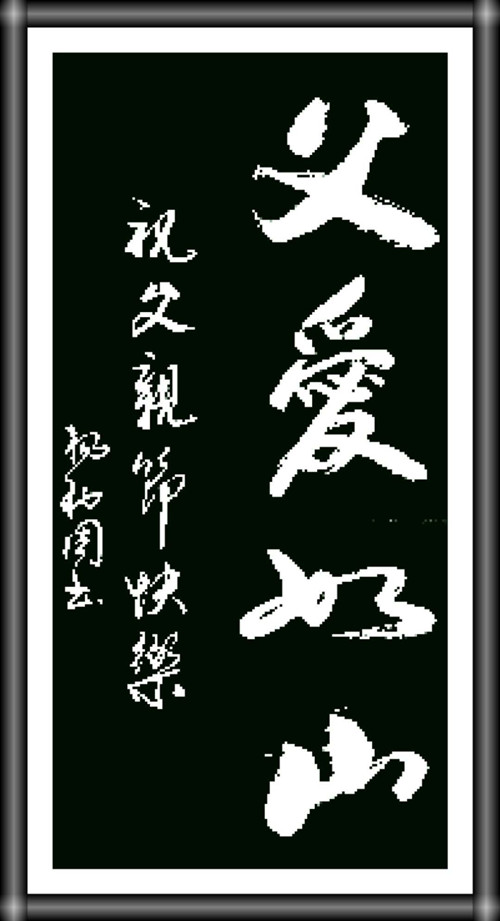 父愛如山
祝父親節快樂
書